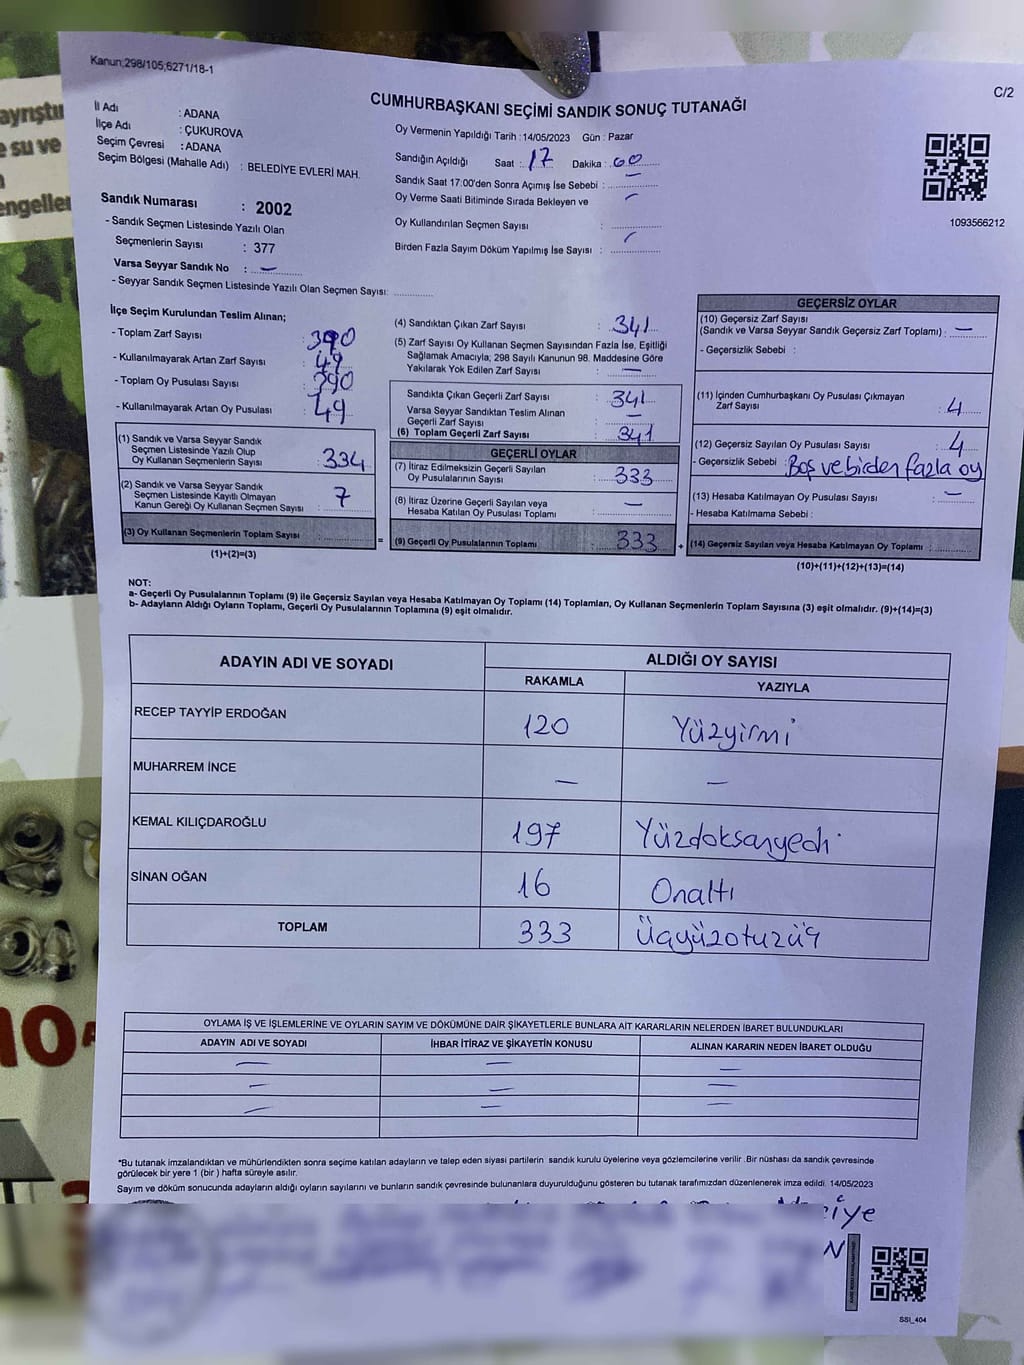 Kanun;298/105;6271/18-1
C/2
CUMHURBAŞKANI SEÇİMİ SANDIK SONUÇ TUTANAĞI
İl Adı : ADANA
İlçe Adı : ÇUKUROVA
Seçim Çevresi : ADANA
Seçim Bölgesi (Mahalle Adı) : BELEDİYE EVLERİ MAH.
Sandık Numarası : 2002
- Sandık Seçmen Listesinde Yazılı Olan
Seçmenlerin Sayısı : 377
Varsa Seyyar Sandık No : —
- Seyyar Sandık Seçmen Listesinde Yazılı Olan Seçmen Sayısı:
Oy Vermenin Yapıldığı Tarih : 14/05/2023 Gün : Pazar
Sandığın Açıldığı Saat : 17 Dakika : 00
Sandık Saat 17:00'den Sonra Açımış İse Sebebi : —
Oy Verme Saati Bitiminde Sırada Bekleyen ve
Oy Kullandırılan Seçmen Sayısı :
Birden Fazla Sayım Döküm Yapılmış İse Sayısı :
1093566212
İlçe Seçim Kurulundan Teslim Alınan;
- Toplam Zarf Sayısı : 390
- Kullanılmayarak Artan Zarf Sayısı : 49
- Toplam Oy Pusulası Sayısı : 390
- Kullanılmayarak Artan Oy Pusulası : 49
(1) Sandık ve Varsa Seyyar Sandık
Seçmen Listesinde Yazılı Olup
Oy Kullanan Seçmenlerin Sayısı : 334
(2) Sandık ve Varsa Seyyar Sandık
Seçmen Listesinde Kayıtlı Olmayan
Kanun Gereği Oy Kullanan Seçmen Sayısı : 7
(3) Oy Kullanan Seçmenlerin Toplam Sayısı :
(1)+(2)=(3)
(4) Sandıktan Çıkan Zarf Sayısı : 341
(5) Zarf Sayısı Oy Kullanan Seçmen Sayısından Fazla İse, Eşitliği
Sağlamak Amacıyla, 298 Sayılı Kanunun 98. Maddesine Göre
Yakılarak Yok Edilen Zarf Sayısı : —
Sandıkta Çıkan Geçerli Zarf Sayısı : 341
Varsa Seyyar Sandıktan Teslim Alınan
Geçerli Zarf Sayısı : —
(6) Toplam Geçerli Zarf Sayısı : 341
GEÇERLİ OYLAR
(7) İtiraz Edilmeksizin Geçerli Sayılan
Oy Pusulalarının Sayısı : 333
(8) İtiraz Üzerine Geçerli Sayılan veya
Hesaba Katılan Oy Pusulası Toplamı : —
(9) Geçerli Oy Pusulalarının Toplamı : 333
GEÇERSİZ OYLAR
(10) Geçersiz Zarf Sayısı
(Sandık ve Varsa Seyyar Sandık Geçersiz Zarf Toplamı) : —
- Geçersizlik Sebebi :
(11) İçinden Cumhurbaşkanı Oy Pusulası Çıkmayan
Zarf Sayısı : 4
(12) Geçersiz Sayılan Oy Pusulası Sayısı : 4
- Geçersizlik Sebebi : Boş ve birden fazla oy
(13) Hesaba Katılmayan Oy Pusulası Sayısı : —
- Hesaba Katılmama Sebebi :
(14) Geçersiz Sayılan veya Hesaba Katılmayan Oy Toplamı :
(10)+(11)+(12)+(13)=(14)
NOT:
a- Geçerli Oy Pusulalarının Toplamı (9) ile Geçersiz Sayılan veya Hesaba Katılmayan Oy Toplamı (14) Toplamları, Oy Kullanan Seçmenlerin Toplam Sayısına (3) eşit olmalıdır. (9)+(14)=(3)
b- Adayların Aldığı Oyların Toplamı, Geçerli Oy Pusulalarının Toplamına (9) eşit olmalıdır.
ADAYIN ADI VE SOYADI ALDIĞI OY SAYISI
RAKAMLA YAZIYLA
RECEP TAYYİP ERDOĞAN 120 Yüzyirmi
MUHARREM İNCE — —
KEMAL KILIÇDAROĞLU 197 Yüzdoksanyedi
SİNAN OĞAN 16 Onaltı
TOPLAM 333 Üçyüzotuzüç
OYLAMA İŞ VE İŞLEMLERİNE VE OYLARIN SAYIM VE DÖKÜMÜNE DAİR ŞİKAYETLERLE BUNLARA AİT KARARLARIN NELERDEN İBARET BULUNDUKLARI
ADAYIN ADI VE SOYADI İHBAR İTİRAZ VE ŞİKAYETİN KONUSU ALINAN KARARIN NEDEN İBARET OLDUĞU
— — —
— — —
— — —
*Bu tutanak imzalandıktan ve mühürlendikten sonra seçime katılan adayların ve talep eden siyasi partilerin sandık kurulu üyelerine veya gözlemcilerine verilir. Bir nüshası da sandık çevresinde
görülecek bir yere 1 (bir ) hafta süreyle asılır.
Sayım ve döküm sonucunda adayların aldığı oyların sayılarını ve bunların sandık çevresinde bulunanlara duyurulduğunu gösteren bu tutanak tarafımızdan düzenlenerek imza edildi. 14/05/2023
SSI_404
ayrıştır
e su ve
engeller
10